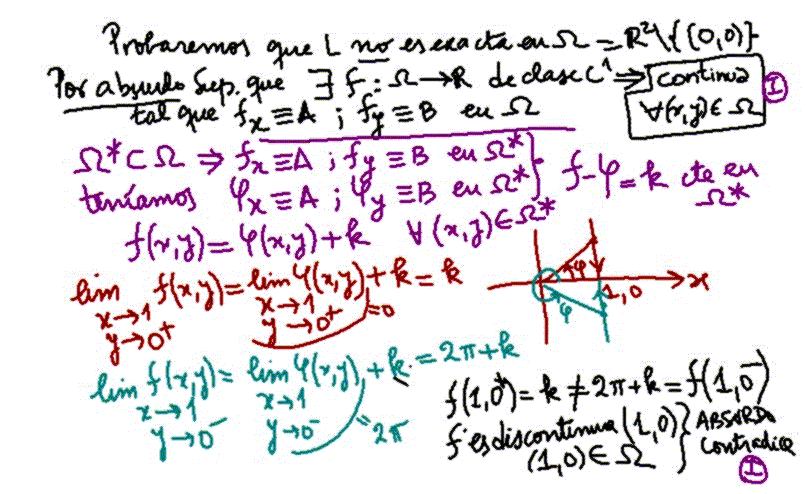 Probaremos que L no es exacta en Ω = R²\{(0,0)}
Por absurdo Sup. que ∃ f: Ω → R de clase C¹ ⇒ continua
tal que fx ≡ A ; fy ≡ B en Ω ∀(x,y) ∈ Ω I
Ω* ⊂ Ω ⇒ fx ≡ A ; fy ≡ B en Ω*
teníamos φx ≡ A ; φy ≡ B en Ω* } f-φ = k cte en Ω*
f(x,y) = φ(x,y) + k ∀ (x,y) ∈ Ω*
lim f(x,y) = lim φ(x,y) + k = k
x→1 x→1 =0
y→0⁺ y→0⁺
φ x
1,0
φ
lim f(x,y) = lim φ(x,y) + k = 2π + k
x→1 x→1
y→0⁻ y→0⁻ =2π
f(1,0⁺) = k ≠ 2π + k = f(1,0⁻)
f es discontinua (1,0) } ABSURDO
(1,0) ∈ Ω contradice
I